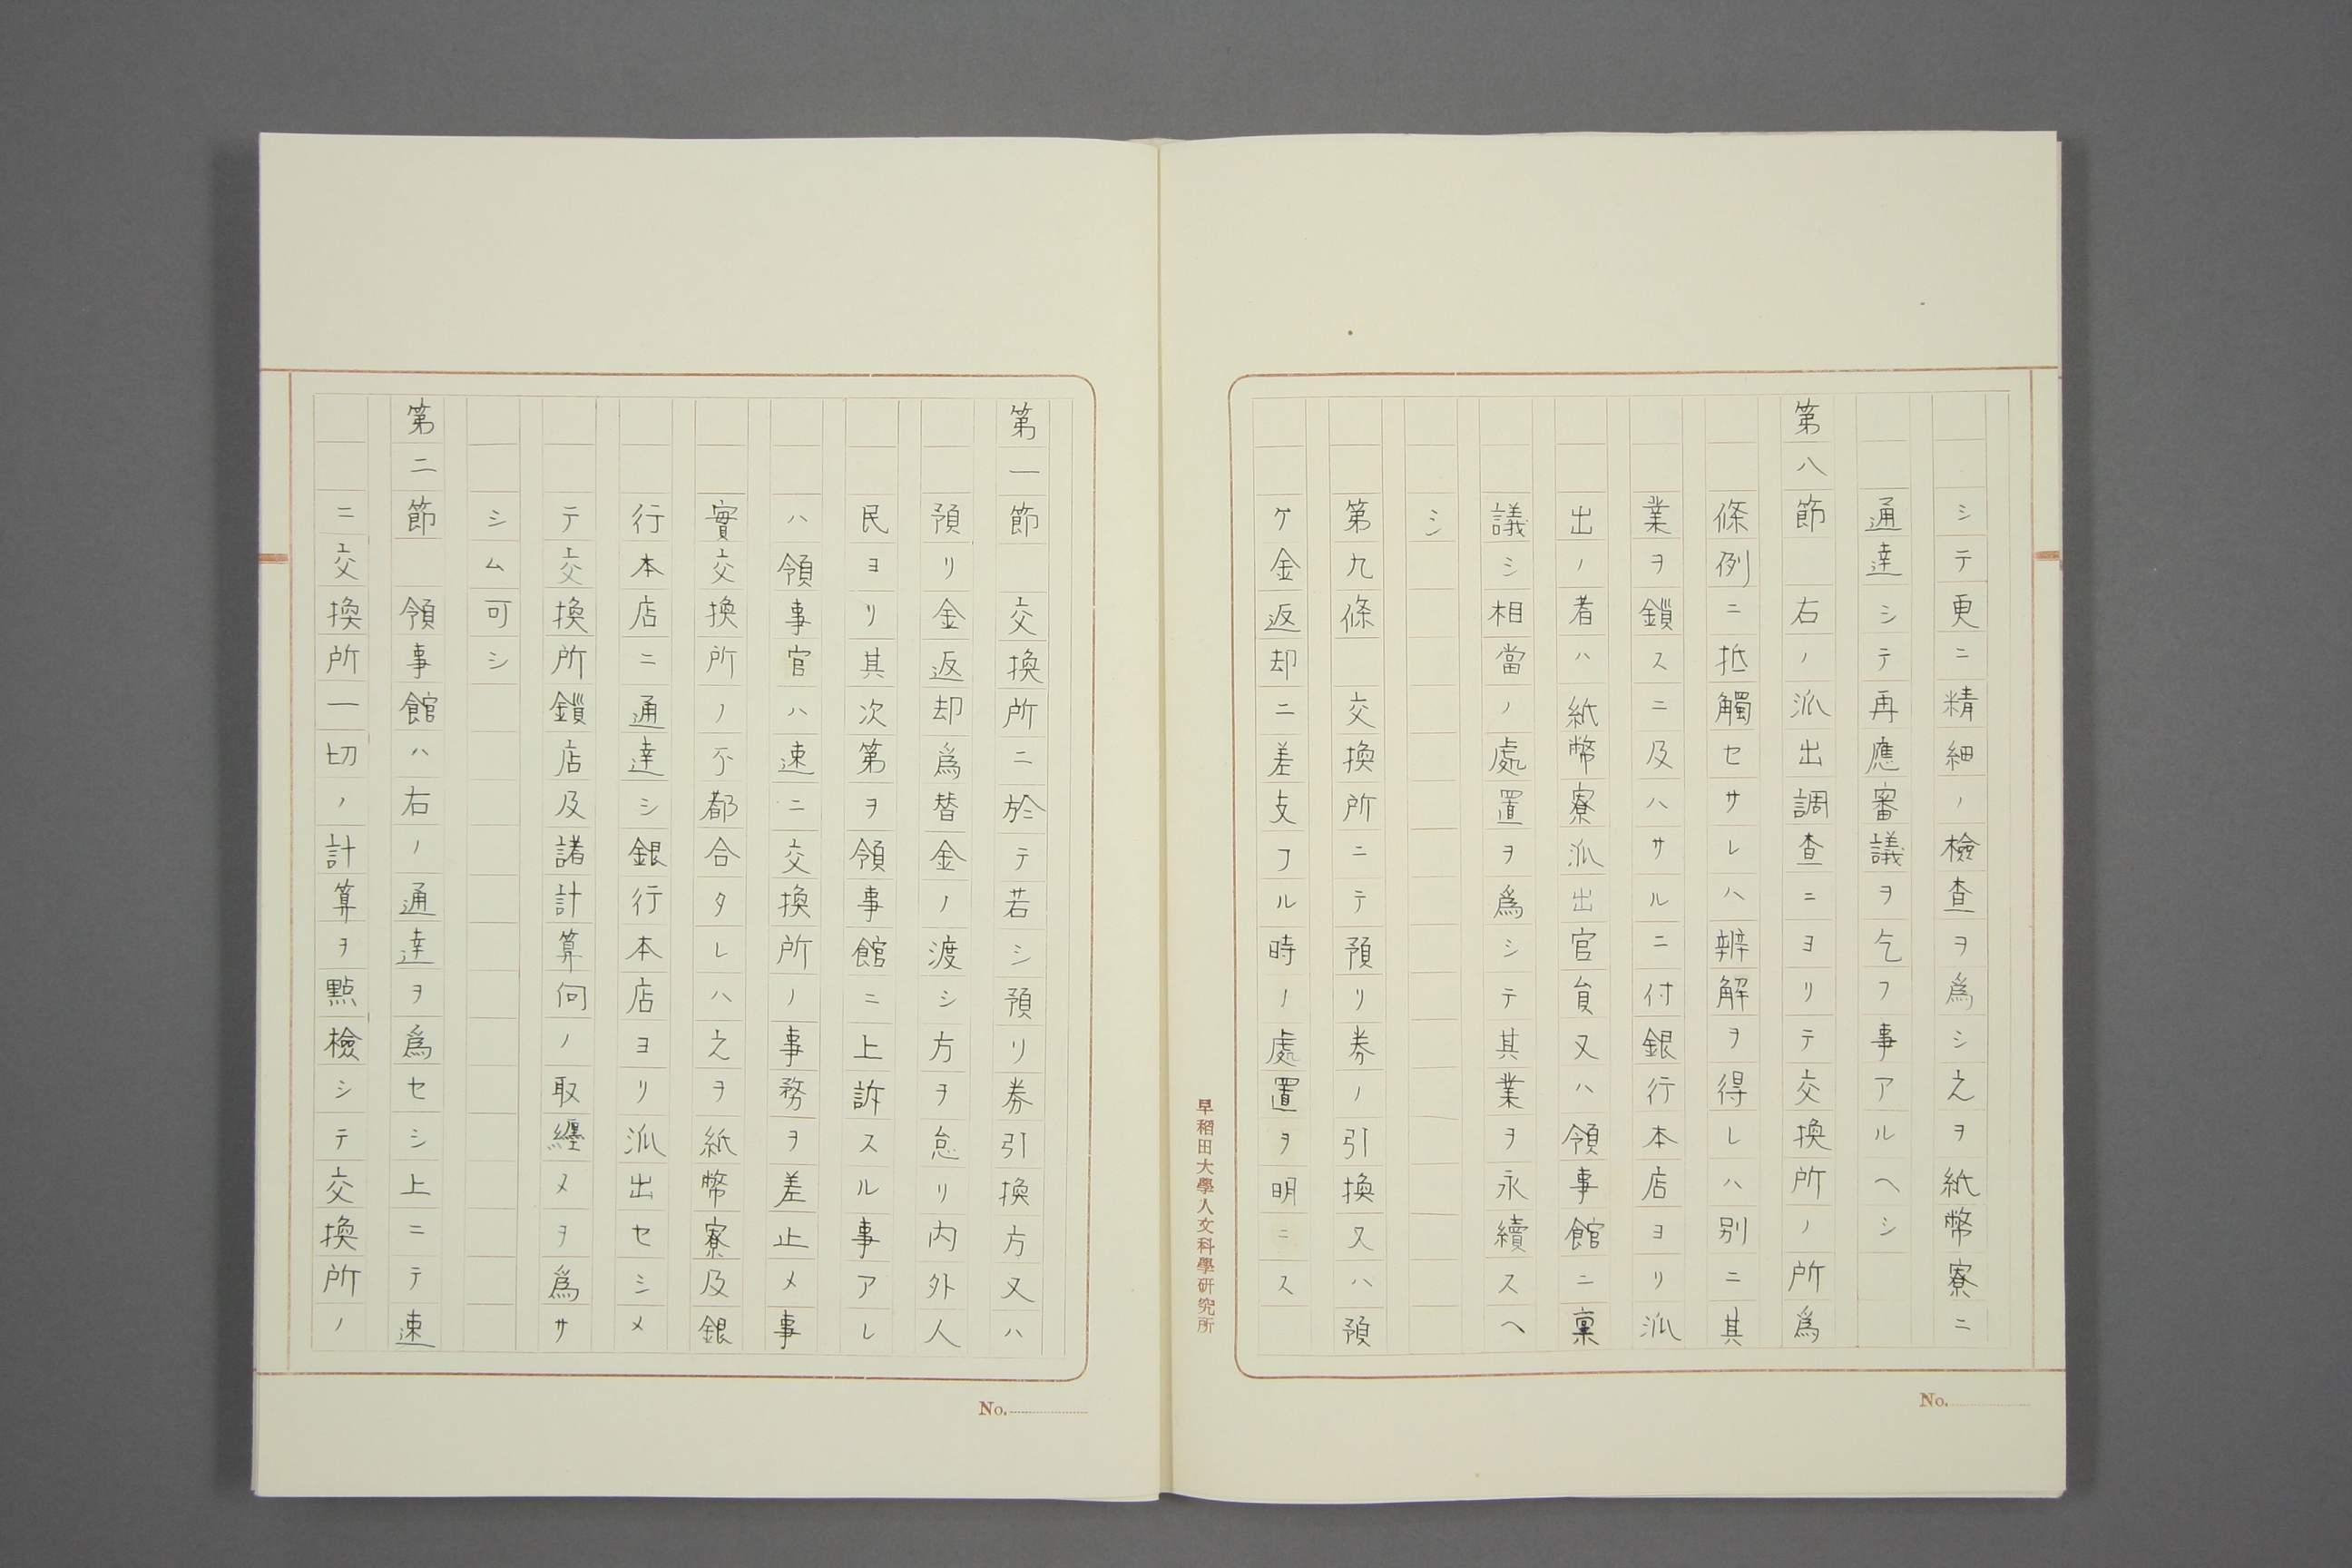 シテ更ニ精細ノ檢査ヲ爲シ之ヲ紙幣寮ニ
通達シテ再應審議ヲ乞フ事アルヘシ
第八節　右ノ派出調査ニヨリテ交換所ノ所爲
條例ニ抵觸セサレハ辨解ヲ得レハ別ニ其
業ヲ鎖スニ及ハサルニ付銀行本店ヨリ派
出ノ者ハ紙幣寮派出官員又ハ領事館ニ稟
議シ相當ノ處置ヲ爲シテ其業ヲ永續スヘ
シ
第九條　交換所ニテ預リ券ノ引換又ハ預
ケ金返却ニ差支フル時ノ處置ヲ明ニス
早稻田大學人文科學研究所
No.
第一節　交換所ニ於テ若シ預リ券引換方又ハ
預リ金返却爲替金ノ渡シ方ヲ怠リ內外人
民ヨリ其次第ヲ領事館ニ上訴スル事アレ
ハ領事官ハ速ニ交換所ノ事務ヲ差止メ事
實交換所ノ不都合タレハ之ヲ紙幣寮及銀
行本店ニ通達シ銀行本店ヨリ派出セシメ
テ交換所鎖店及諸計算向ノ取纒メヲ爲サ
シム可シ
第二節　領事館ハ右ノ通達ヲ爲セシ上ニテ速
ニ交換所一切ノ計算ヲ點檢シテ交換所ノ
No.